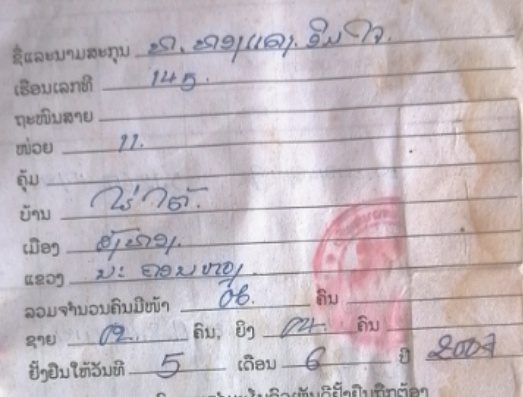 ຊື່ແລະນາມສະກຸນ ທ. ທອງແດງ. ອິນໃຈ.
ເຮືອນເລກທີ 145.
ຖະໜົນສາຍ
ໜ່ວຍ 11.
ຄຸ້ມ
ບ້ານ ໄຮ່ໃຕ້.
ເມືອງ
ແຂວງ ນະຄອນຫຼວງ
ລວມຈຳນວນຄົນມີໜ້າ 06. ຄົນ
ຊາຍ 02. ຄົນ, ຍິງ 04. ຄົນ
ຢັ້ງຢືນໃຫ້ວັນທີ 5 ເດືອນ 6 ປີ 2007